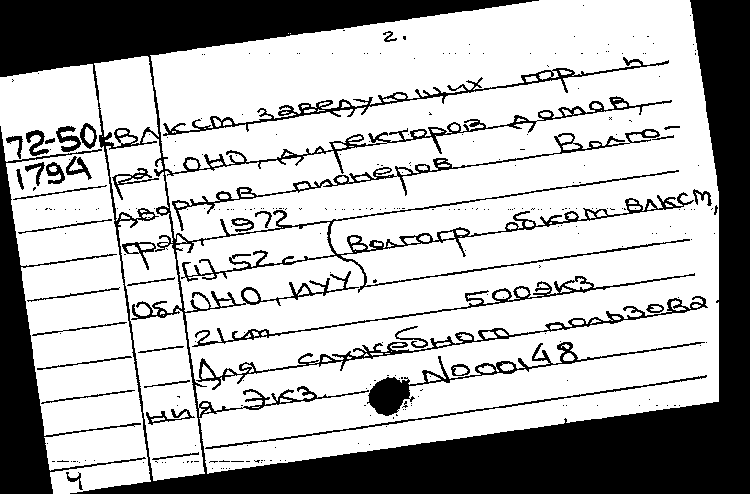 2.
72-50к
1794
ВЛКСМ, заведующих гор. и
районо, директоров домов,
дворцов пионеров. Волго-
град, 1972.
[1], 52 с. (Волгогр. обком ВЛКСМ,
ОблОНО, ИУУ).
21 см. 500 экз.
Для служебного пользова-
ния. Экз. N000148
4